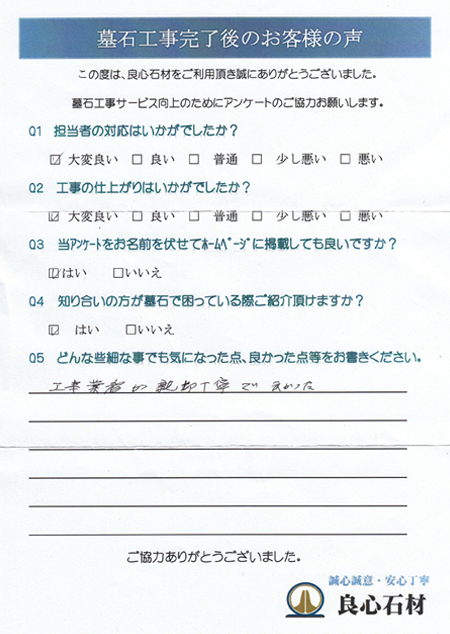 墓石工事完了後のお客様の声
この度は、良心石材をご利用頂き誠にありがとうございました。
墓石工事サービス向上のためにアンケートのご協力お願いします。
Q1 担当者の対応はいかがでしたか？
☑ 大変良い □ 良い □ 普通 □ 少し悪い □ 悪い
Q2 工事の仕上がりはいかがでしたか？
☑ 大変良い □ 良い □ 普通 □ 少し悪い □ 悪い
Q3 当ｱﾝｹｰﾄをお名前を伏せてﾎｰﾑﾍﾟｰｼﾞに掲載しても良いですか？
☑はい □いいえ
Q4 知り合いの方が墓石で困っている際ご紹介頂けますか？
☑ はい □いいえ
Q5 どんな些細な事でも気になった点、良かった点等をお書きください。
工事業者が親切丁寧でよかった
ご協力ありがとうございました。
誠心誠意・安心丁寧
良心石材